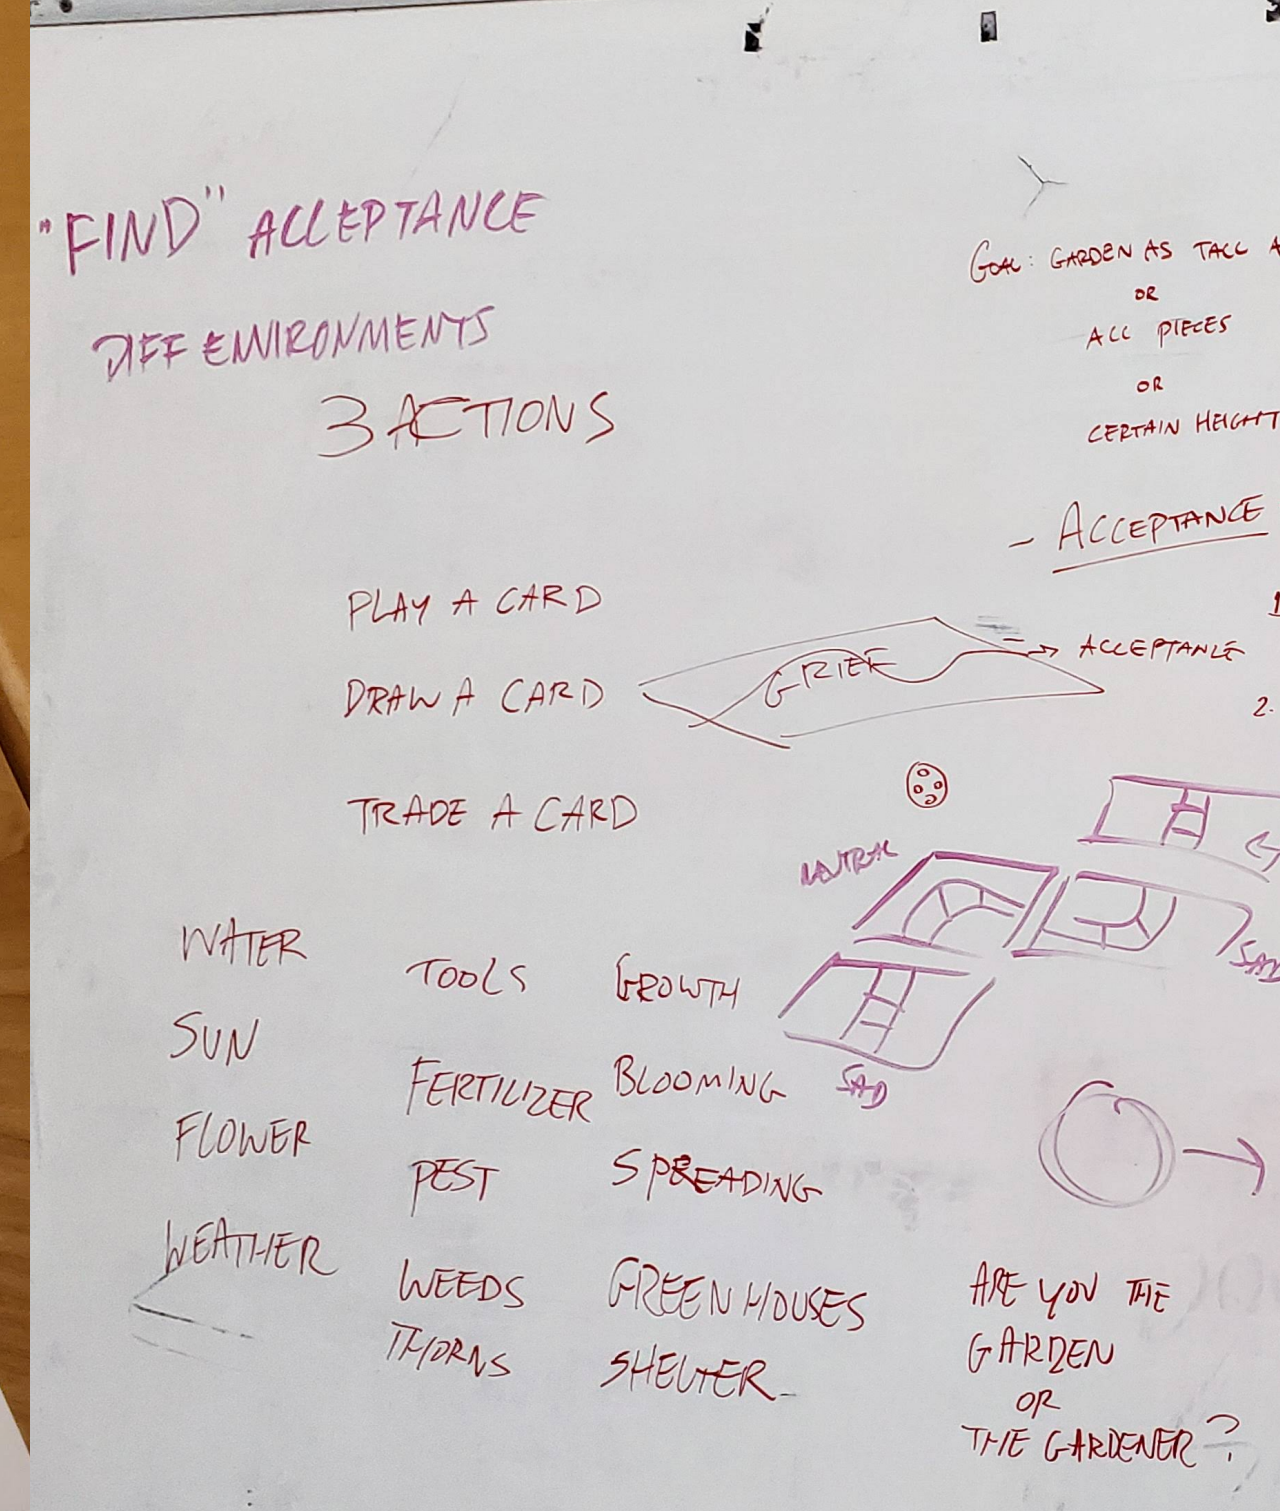 "FIND" ACCEPTANCE
DIFF ENVIRONMENTS
3 ACTIONS
PLAY A CARD
DRAW A CARD
TRADE A CARD
WATER
SUN
FLOWER
WEATHER
TOOLS
FERTILIZER
PEST
WEEDS
THORNS
GROWTH
BLOOMING
SPREADING
GREEN HOUSES
SHELTER
GOAL: GARDEN AS TALL A
OR
ALL PIECES
OR
CERTAIN HEIGHT
- ACCEPTANCE
GRIEF
ACCEPTANCE
2.
NEUTRAL
SAD
SAD
ARE YOU THE
GARDEN
OR
THE GARDENER?